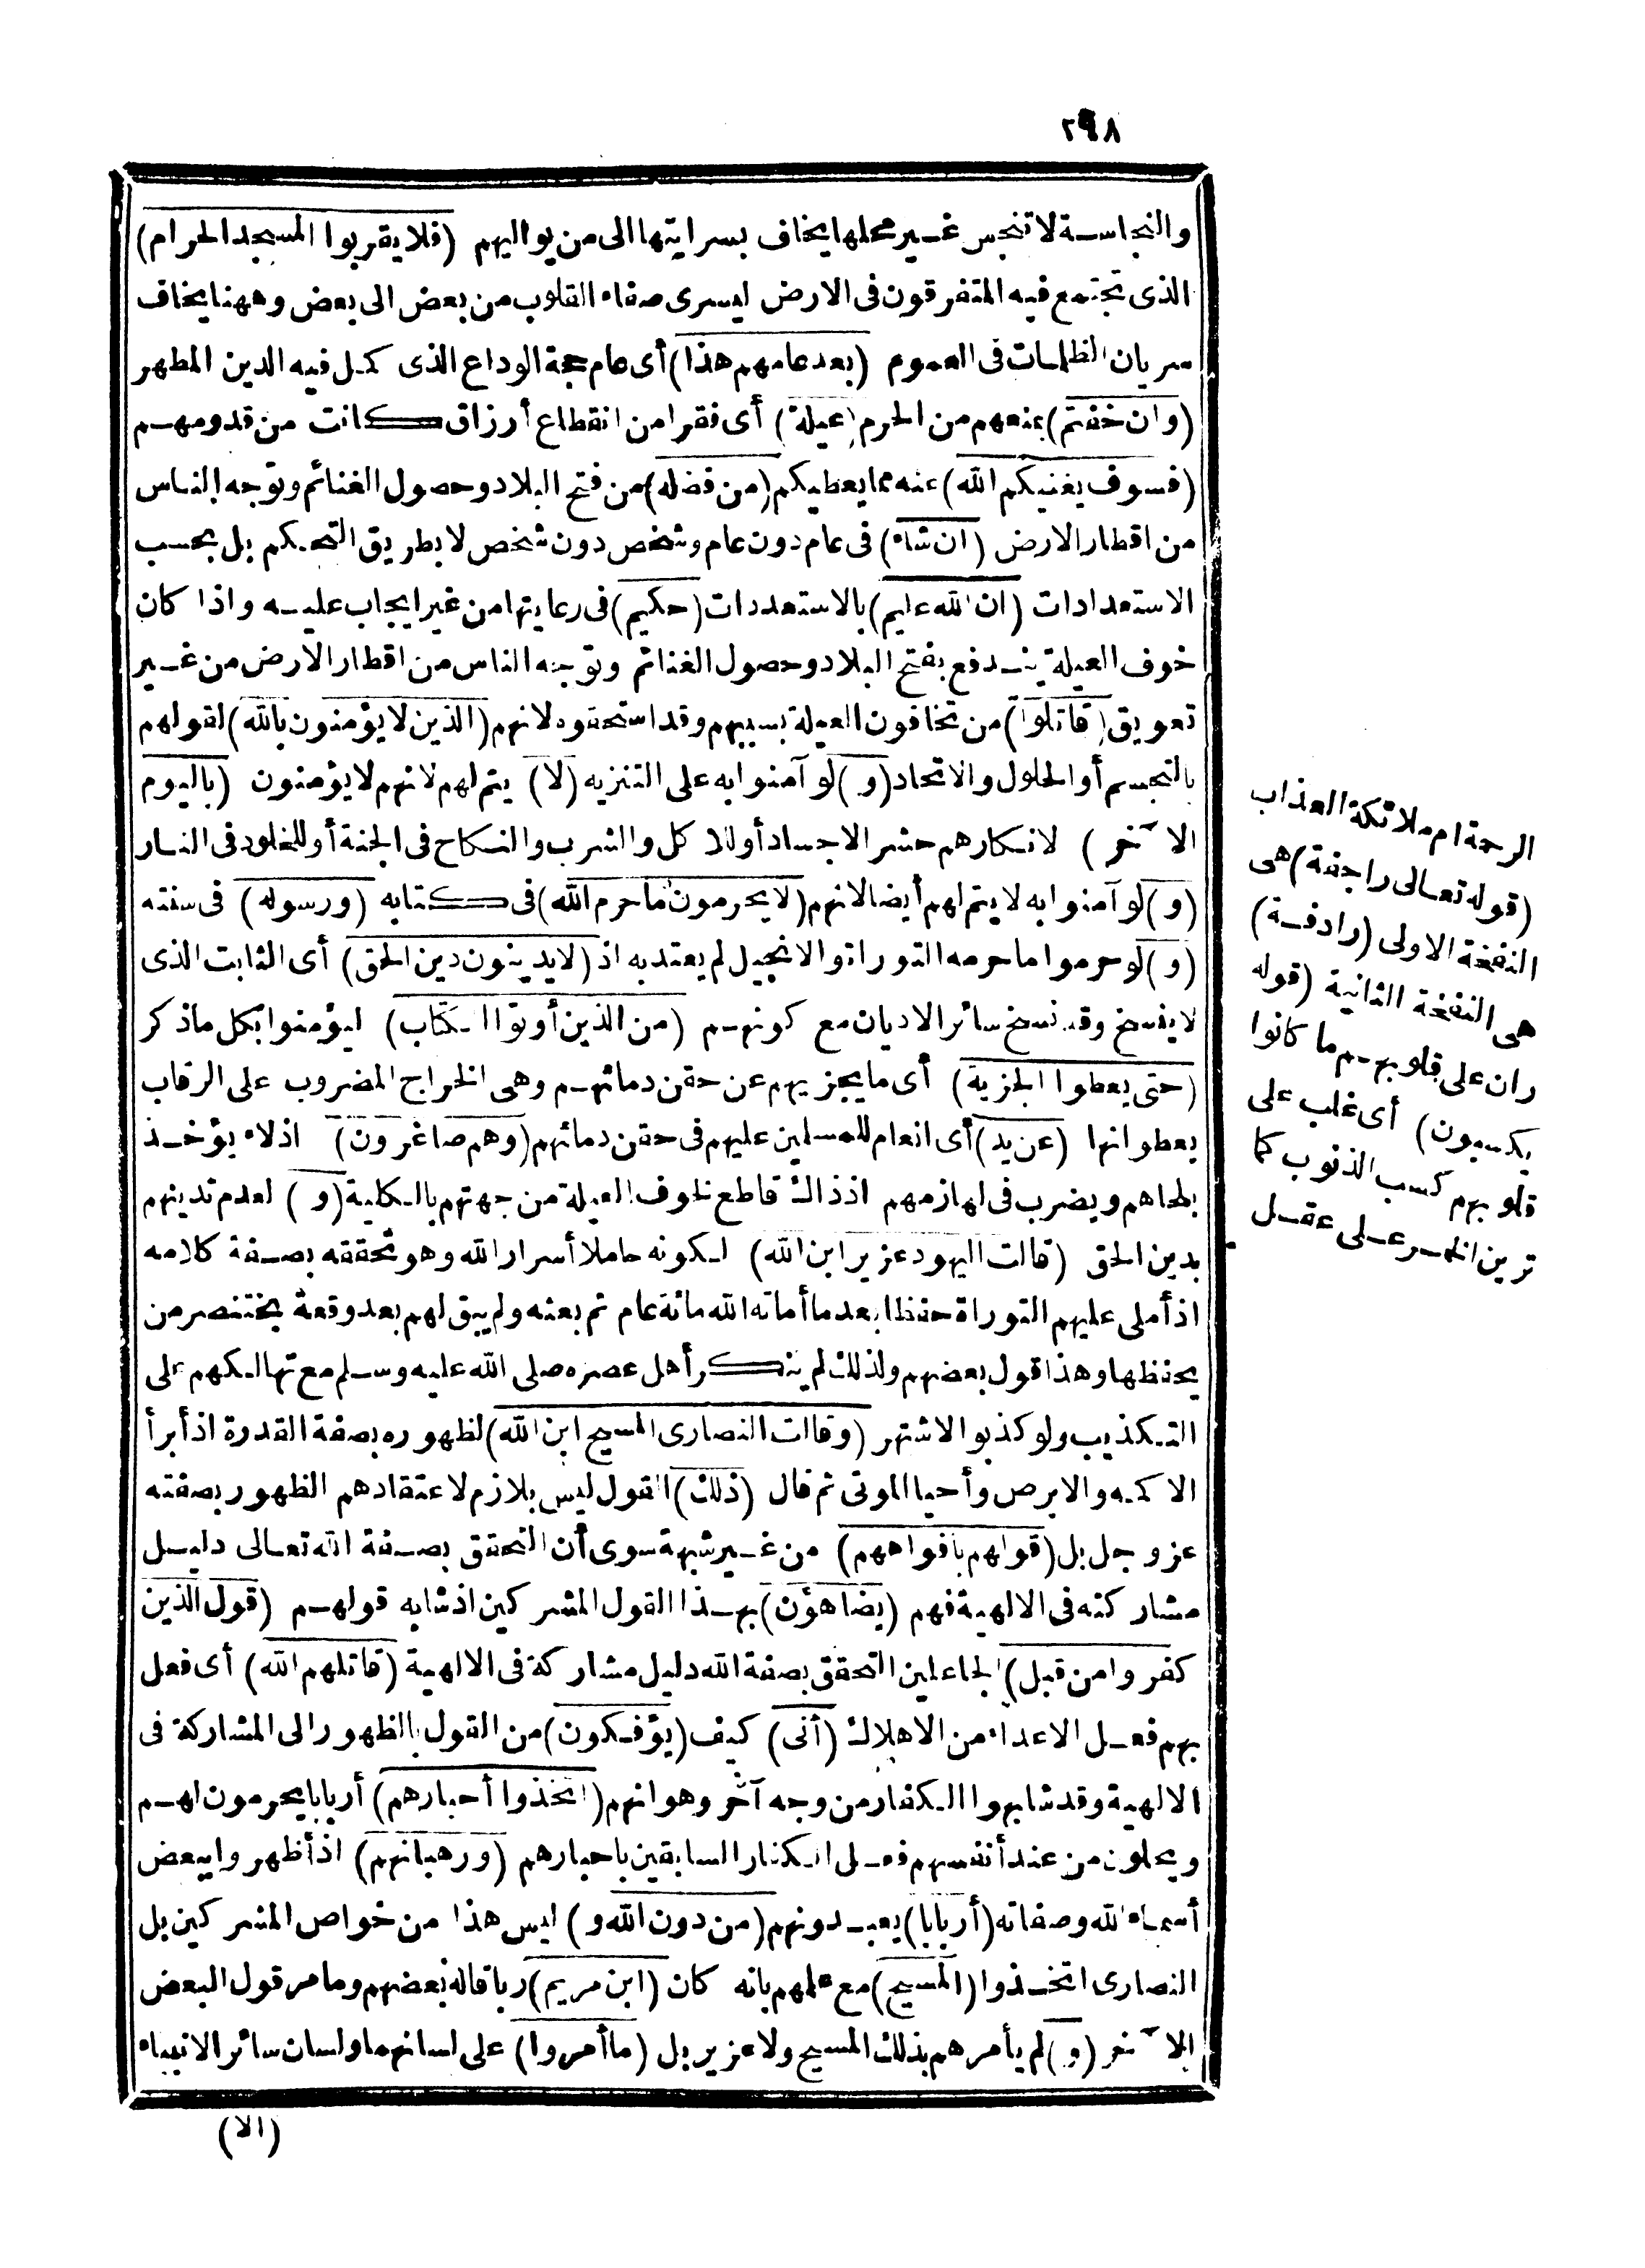 ٢٩٨
والنجاسة لا تنجس غير محلها يخاف بسرايتها الى من يواليهم (فلا يقربوا المسجد الحرام)
الذى تجتمع فيه المتفرقون فى الارض ليسرى صفاء القلوب من بعض الى بعض وههنا يخاف
سريان الظلمات فى العموم (بعد عامهم هذا) أى عام حجة الوداع الذى كمل فيه الدين المطهر
(وان خفتم) بمنعهم من الحرم (عيلة) أى فقرا من انقطاع أرزاق كانت من قدومهم
(فسوف يغنيكم الله) عنه مما يعطيكم (من فضله) من فتح البلاد وحصول الغنائم وتوجه الناس
من اقطار الارض (ان شاء) فى عام دون عام وشخص دون شخص لا بطريق التحكم بل بحسب
الاستعدادات (ان الله عليم) بالاستعددات (حكيم) فى رعايتها من غير ايجاب عليه واذا كان
خوف العيلة يندفع بفتح البلاد وحصول الغنائم وتوجه الناس من اقطار الارض من غير
تعويق (قاتلوا) من تخافون العيلة بسببهم وقد استحقوه لانهم (الذين لا يؤمنون بالله) لقولهم
بالتجسم أو الحلول والاتحاد (و) لو آمنوا به على التنزيه (لا) يتم لهم لانهم لا يؤمنون (باليوم
الآخر) لانكارهم حشر الاجساد أو للاكل والشرب والنكاح فى الجنة أو للخلود فى النار
(و) لو آمنوا به لا يتم لهم أيضا لانهم (لا يحرمون ما حرم الله) فى كتابه (ورسوله) فى سنته
(و) لو حرموا ما حرمه التوراة والانجيل لم يعتد به اذ (لا يدينون دين الحق) أى الثابت الذى
لا ينسخ وقد نسخ سائر الاديان مع كونهم (من الذين أوتوا الكتاب) ليؤمنوا بكل ما ذكر
(حتى يعطوا الجزية) أى ما يجزيهم عن حقن دمائهم وهى الخراج المضروب على الرقاب
يعطوانها (عن يد) أى انعام للمسلمين عليهم فى حقن دمائهم (وهم صاغرون) اذلاء يؤخذ
بلحاهم ويضرب فى لهازمهم اذ ذاك قاطع لخوف العيلة من جهتهم بالكلية (و) لعدم تدينهم
بدين الحق (قالت اليهود عزير ابن الله) لكونه حاملا أسرار الله وهو تحققه بصفة كلامه
اذ أملى عليهم التوراة حفظا بعد ما أماته الله مائة عام ثم بعثه ولم يبق لهم بعد وقعة بختنصر من
يحفظها وهذا قول بعضهم ولذلك لم ينكر أهل عصره صلى الله عليه وسلم مع تهالكهم على
التكذيب ولو كذبوا لاشتهر (وقالت النصارى المسيح ابن الله) لظهوره بصفة القدرة اذ أبرأ
الاكمه والابرص وأحيا الموتى ثم قال (ذلك) القول ليس بلازم لاعتقادهم الظهور بصفته
عز وجل بل (قولهم بأفواههم) من غير شبهة سوى أن التحقق بصفة الله تعالى دليل
مشاركته فى الالهية فهم (يضاهؤن) بهذا القول المشركين اذ شابه قولهم (قول الذين
كفروا من قبل) الجاعلين التحقق بصفة الله دليل مشاركة فى الالهية (قاتلهم الله) أى فعل
بهم فعل الاعداء من الاهلاك (أنى) كيف (يؤفكون) من القول بالظهور الى المشاركة فى
الالهية وقد شابهوا الكفار من وجه آخر وهو انهم (اتخذوا أحبارهم) أربابا يحرمون لهم
ويحلون من عند أنفسهم فعل الكفار السابقين باحبارهم (ورهبانهم) اذ أظهروا ببعض
أسماء الله وصفاته (أربابا) يعبدونهم (من دون الله و) ليس هذا من خواص المشركين بل
النصارى اتخذوا (المسيح) مع علمهم بانه كان (ابن مريم) ربا قاله بعضهم وما مر قول البعض
الآخر (و) لم يأمرهم بذلك المسيح ولا عزير بل (ما أمروا) على لسانهما ولسان سائر الانبياء
(الا)
الرحمة ام ملائكة العذاب
(قوله تعالى راجفة) هى
النفخة الاولى (رادفة)
هى النفخة الثانية (قوله
ران على قلوبهم ما كانوا
يكسبون) أى غلب على
قلوبهم كسب الذنوب كما
ترين الخمر على عقل